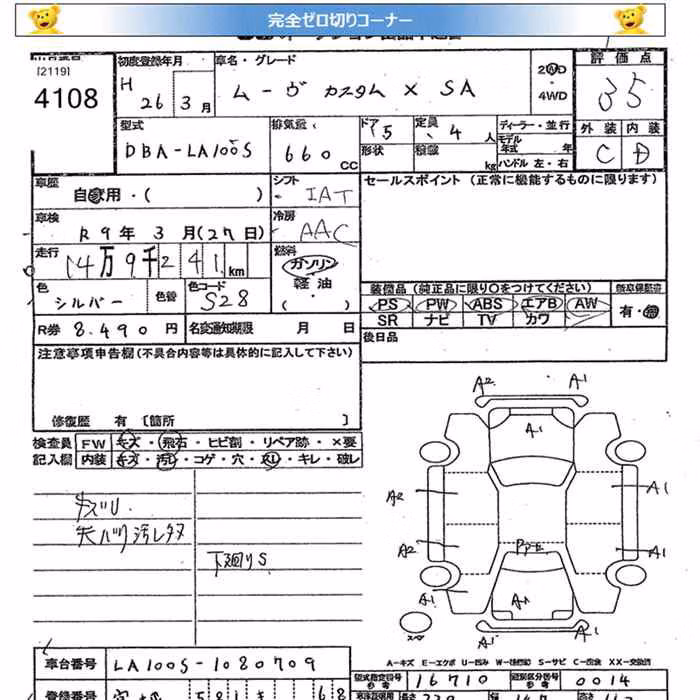 完全ゼロ切りコーナー
[2119]
4108
初度登録年月
H 26年 3月
車名・グレード
ムーヴ カスタム X SA
2WD
・4WD
評価点
35
外装 内装
C D
型式
DBA-LA100S
排気量
660 CC
ドア 5
形状
定員 4人
積載 kg
ディーラー・並行
モデル年式 年
ハンドル 左・右
車歴
自家用・( )
シフト
IAT
セールスポイント (正常に機能するものに限ります)
車検
R 9年 3月(27日)
冷房
AAC
走行
14万9千241km
燃料
ガソリン
軽油
( ・ )
色
シルバー
色替
色コード
S28
装備品 (純正品に限り○をつけてください)
PS PW ABS エアB AW
SR ナビ TV カワ
新車保証書
有・無
R券 8,490円
名変通知期限 月 日
後日品
注意事項申告欄(不具合内容等は具体的に記入して下さい)
修復歴 有〔箇所 〕
検査員
記入欄
FW キズ・飛石・ヒビ割・リペア跡・×要
内装 キズ・汚レ・コゲ・穴・スレ・キレ・破レ
キズU
天バリ汚レタタ
下廻りS
A2 A1
A1
A2 A1
A2 A1
A1 A1 A1
A1 A1
スペア
A-キズ E-エクボ U-凹み W-(補修跡) S-サビ C-腐食 X-交換要 XX-交換済
車台番号
LA100S-1080709
型式指定番号
16710
類別区分番号
0014
登録番号